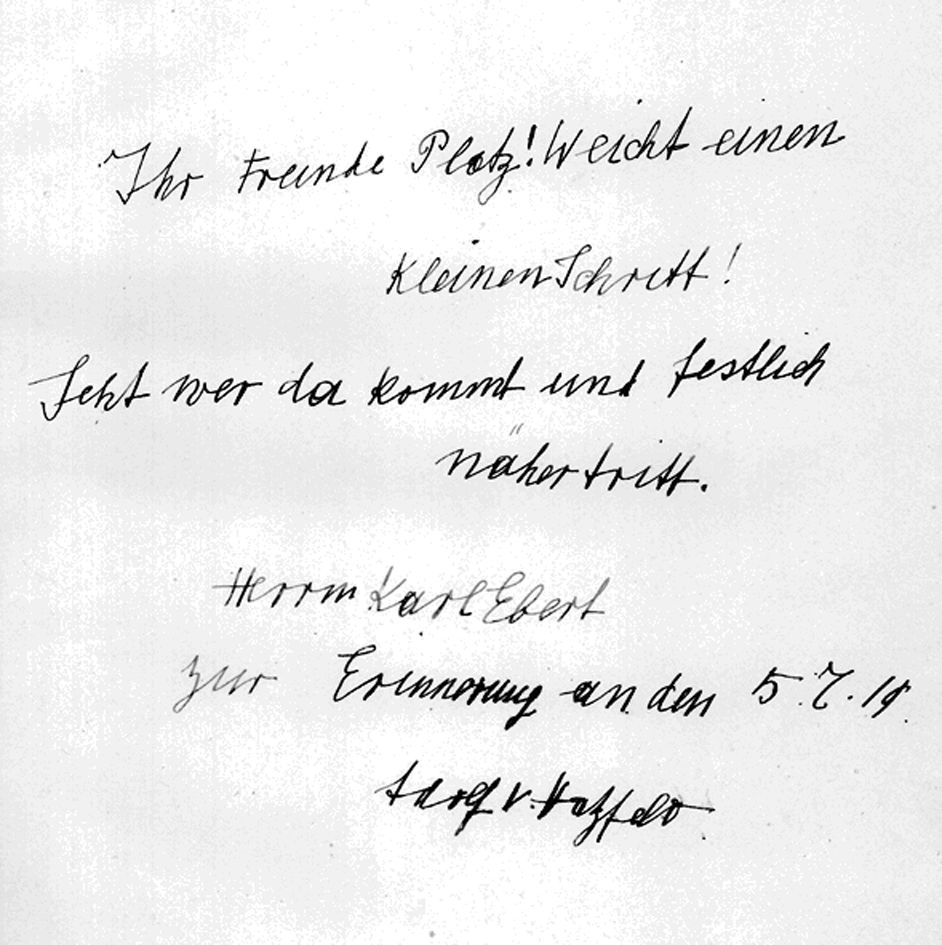 Ihr Freunde Platz! Weicht einen
kleinen Schritt!
Seht wer da kommt und festlich
näher tritt.
Herrn Karl Ebert
zur Erinnerung an den 5.7.19.
Adolf v. Hatzfeld